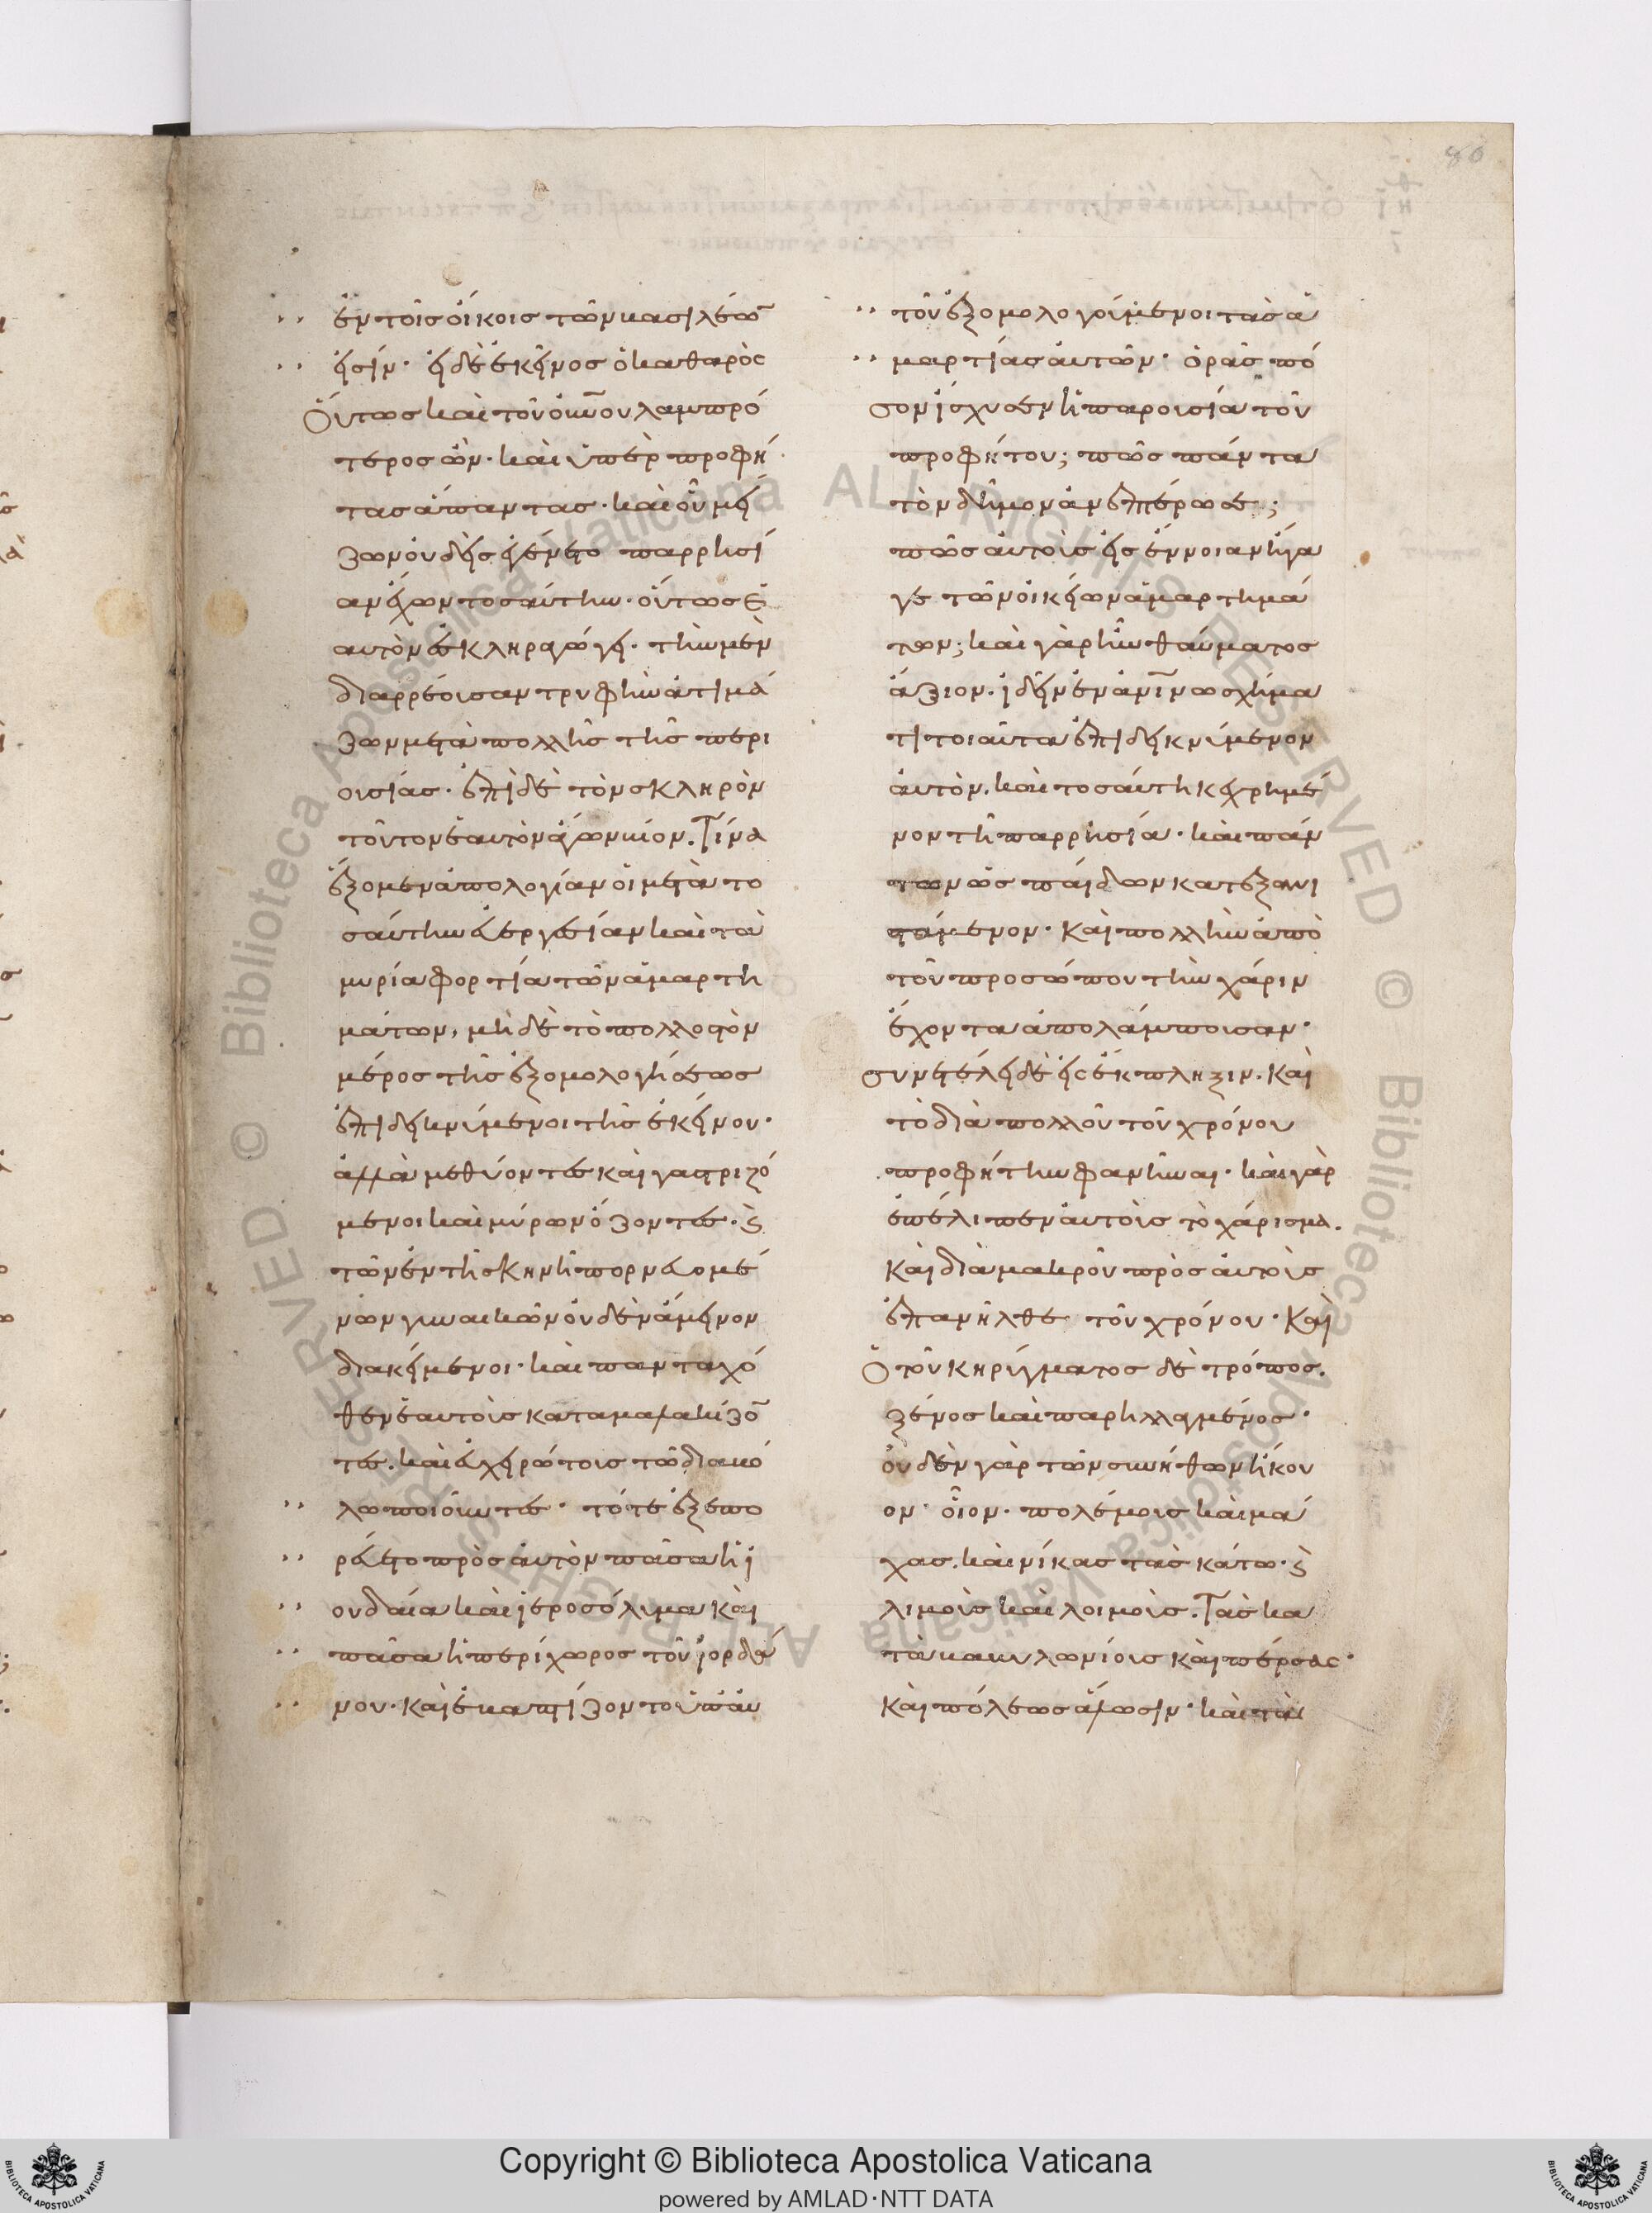 86
ἐν τοῖς οἴκοις τῶν βασιλέω̅
εἰσίν· εἰ δὲ ἐκεῖνος ὁ καθαρὸς
Οὕτως καὶ τοῦ οὐ̅νου λαμπρό
τερος ὢν· καὶ ὑπὲρ προφή
τας ἅπαντας· καὶ οὗ μεί
ζων οὐδεὶς ἐγένετο παρρησί
αν ἔχων τοσαύτην· οὕτως ἑ
αυτὸν ἐσκληραγώγει· τὴν μὲν
διαρρέουσαν τρυφὴν ἀτιμά
ζων μετὰ πολλῆς τῆς περι
ουσίας· ἐπὶ δὲ τὸν σκληρὸν
τοῦτον ἑαυτὸν ἄγων βίον. Τίνα
ἕξομεν ἀπολογίαν οἱ μετὰ το
σαύτην εὐεργεσίαν καὶ τὰ
μυρία φορτία τῶν ἁμαρτη
μάτων, μὴ δὲ τὸ πολλοστὸν
μέρος τῆς ἐξομολογήσεως
ἐπιδεικνύμενοι τῆς ἐκείνου·
ἀλλὰ μεθύοντες καὶ γαστριζό
μενοι καὶ μύρων ὄζοντες· ϗ
τῶν ἐν τῆ σκηνῆ πορνευομέ
νων γυναικῶν οὐδὲν ἄμεινον
διακείμενοι· καὶ πανταχό
θεν ἑαυτοὺς καταμαλακίζο̅
τες. καὶ εὐχειρώτους τῶ διαβό
λω ποιοῦντες· τότε ἐξεπο
ρεύετο πρὸς αὐτὸν πᾶσα ἡ ἰ
ουδαία καὶ ἱεροσόλυμα καὶ
πᾶσα ἡ περίχωρος τοῦ ἰορδά
νου· καὶ ἐβαπτίζοντο ὑπ' αὐ
τοῦ ἐξομολογούμενοι τὰς ἁ
μαρτίας αὐτῶν· ὁρᾶς πό
σον ἴσχυσεν ἡ παρουσία τοῦ
προφήτου; πῶς πάντα
τὸν δῆμον ἀνεπτέρωσε;
πῶς αὐτοὺς εἰς ἔννοιαν ἤγα
γε τῶν οἰκείων ἁμαρτημά
των; καὶ γὰρ ἦν θαύματος
ἄξιον. ἰδεῖν ἐν ἀν̅ι̅νω σχήμα
τι τοιαῦτα ἐπιδεικνύμενον
αὐτὸν. καὶ τοσαύτη κεχρημέ
νον τῆ παρρησία· καὶ πάν
των ὡς παίδων κατεξανι
στάμενον· Καὶ πολλὴν ἀπὸ
τοῦ προσώπου τὴν χάριν
ἔχοντα ἀπολάμπουσαν·
συνετέλει δὲ εἰς ἔκπληξιν. Καὶ
τὸ διὰ πολλοῦ τοῦ χρόνου
προφήτην φανῆναι· καὶ γὰρ
ἐπέλιπεν αὐτοὺς τὸ χάρισμα.
Καὶ διὰ μακροῦ πρὸς αὐτοὺς
ἐπανῆλθε τοῦ χρόνου· Καὶ
Ὁ τοῦ κηρύγματος δὲ τρόπος.
ξένος καὶ παρηλλαγμένος·
οὐδὲν γὰρ τῶν συνήθων ἤκου
ον· οἷον· πολέμους καὶ μά
χας. καὶ νίκας τὰς κάτω· ϗ
λιμοὺς καὶ λοιμοὺς. Τὰς κα
τὰ βαβυλωνίους καὶ πέρσας·
Καὶ πόλεως ἅλωσιν· καὶ τὰ
Copyright © Biblioteca Apostolica Vaticana
powered by AMLAD·NTT DATA